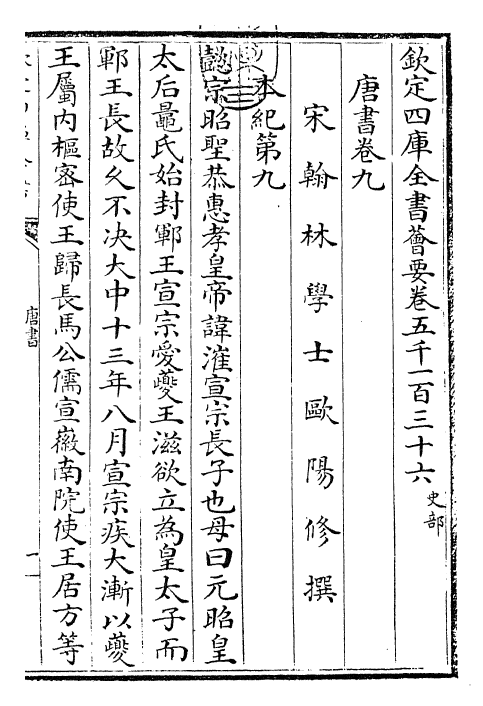 欽定四庫全書薈要卷五千一百三十六 史部
唐書卷九
宋翰林學士歐陽修撰
本紀第九
懿宗昭聖恭惠孝皇帝諱漼宣宗長子也母曰元昭皇
太后鼂氏始封鄆王宣宗愛夔王滋欲立為皇太子而
鄆王長故久不決大中十三年八月宣宗疾大漸以夔
王屬內樞密使王歸長馬公儒宣徽南院使王居方等
唐書
一